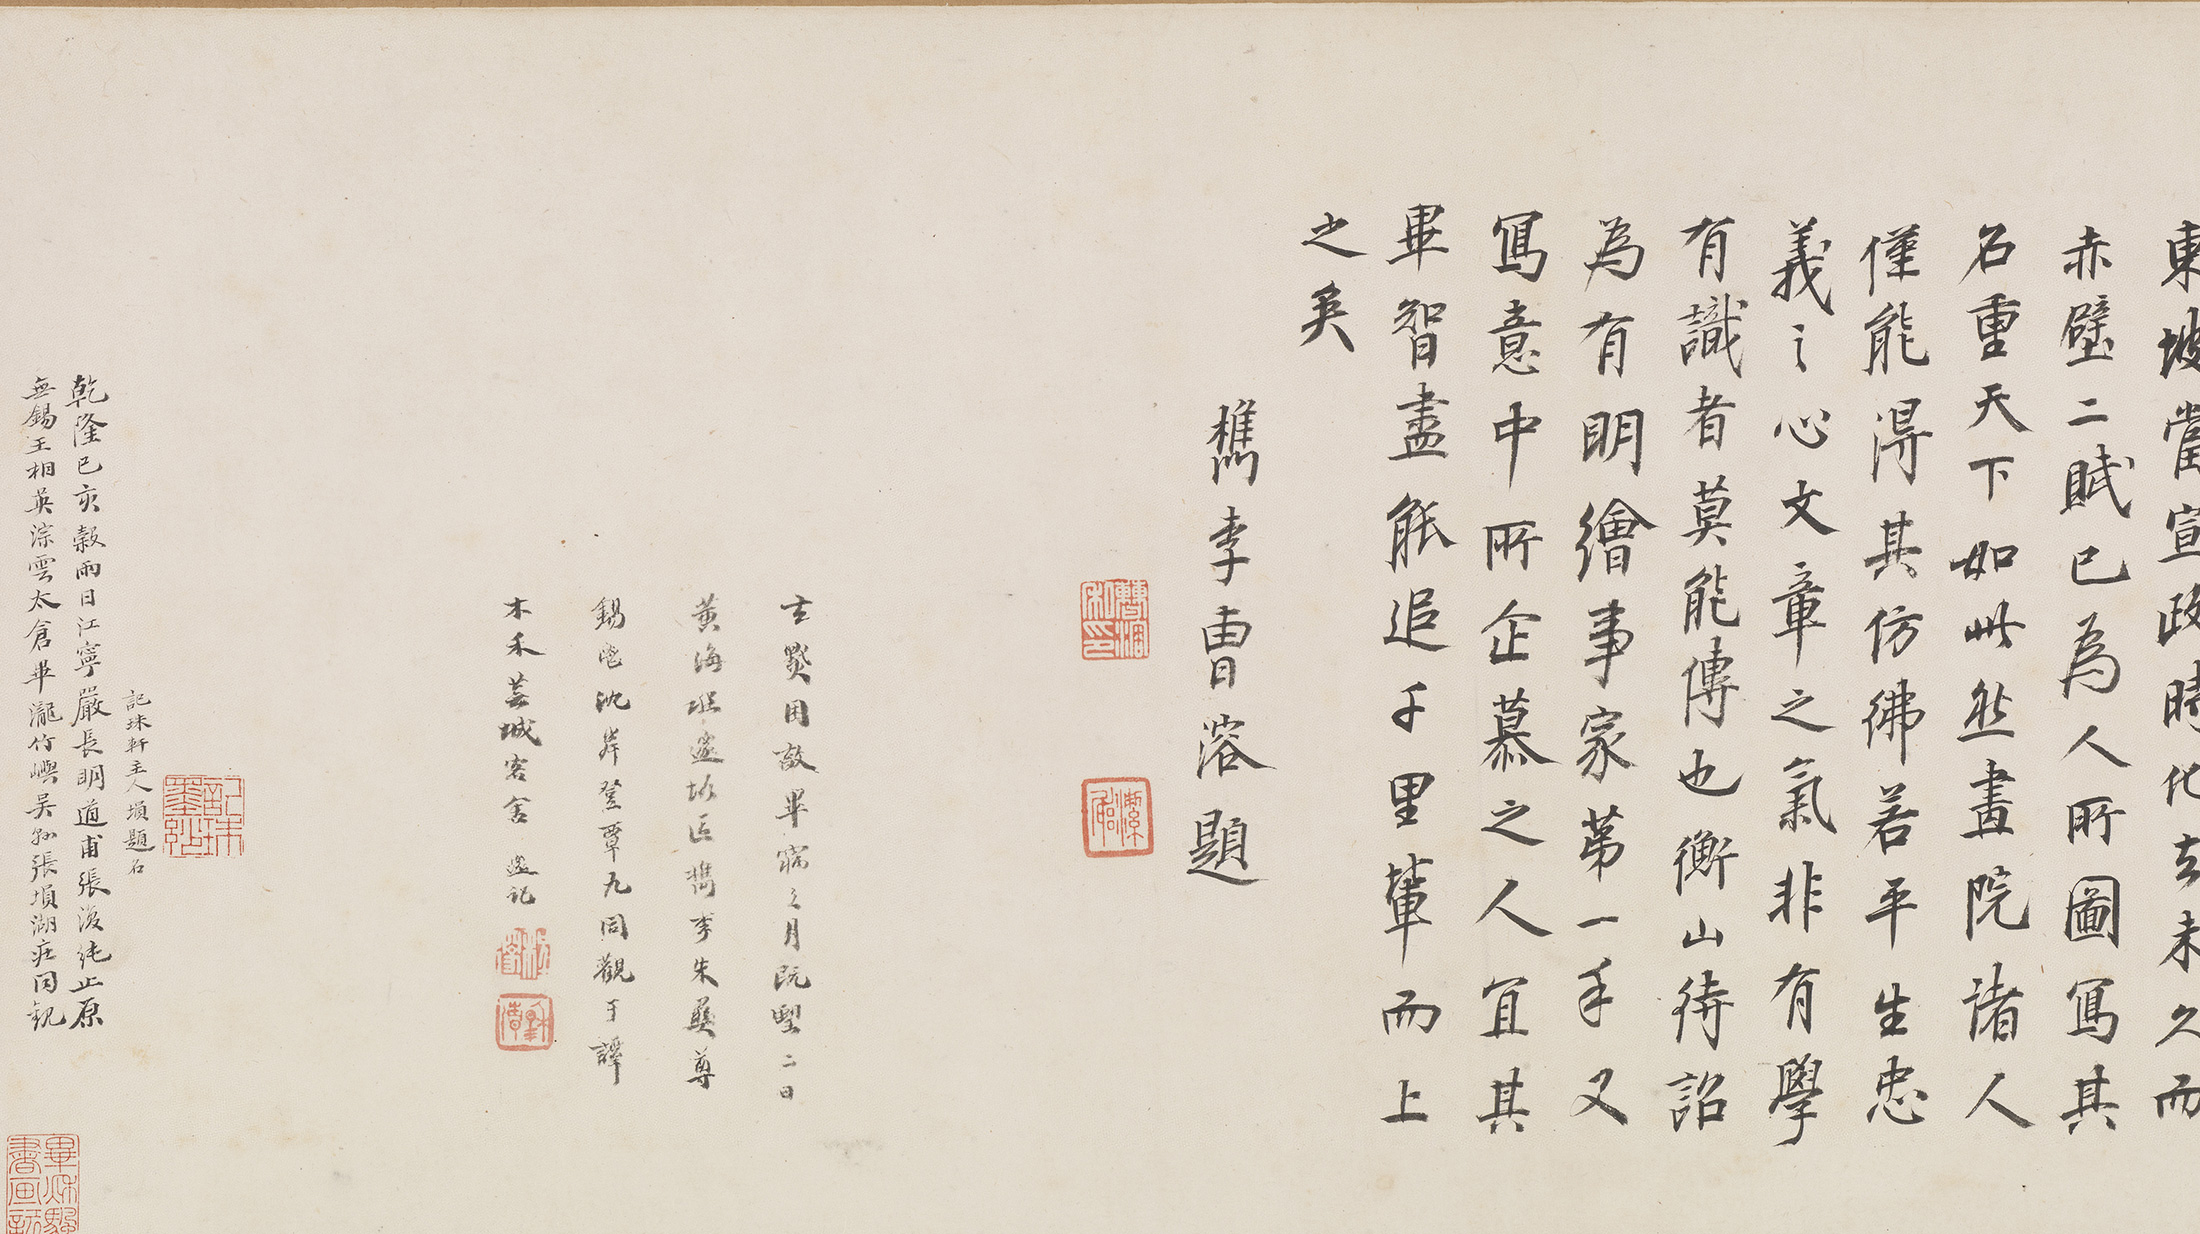 東坡當宣政時化去未久而
赤壁二賦已為人所圖寫其
名重天下如此然畫院諸人
僅能得其仿彿若平生忠
義之心文章之氣非有學
有識者莫能傳也衡山待詔
為有明繪事家第一手又
寫意中所企慕之人宜其
畢智盡能追千里輦而上
之矣
檇李曹溶題
潔躬
玄黓困敦畢之月既朢二日
黃海程邃垢區檇李朱彝尊
錫鬯沈岸登覃九同觀于譚
木禾蕪城客舍 邃記
記珠軒主人塤題名
乾隆己亥穀雨日江寧嚴長明道甫張復純止原
無錫王相英淙雲太倉畢瀧竹嶼吳縣張塤湖庄同觀